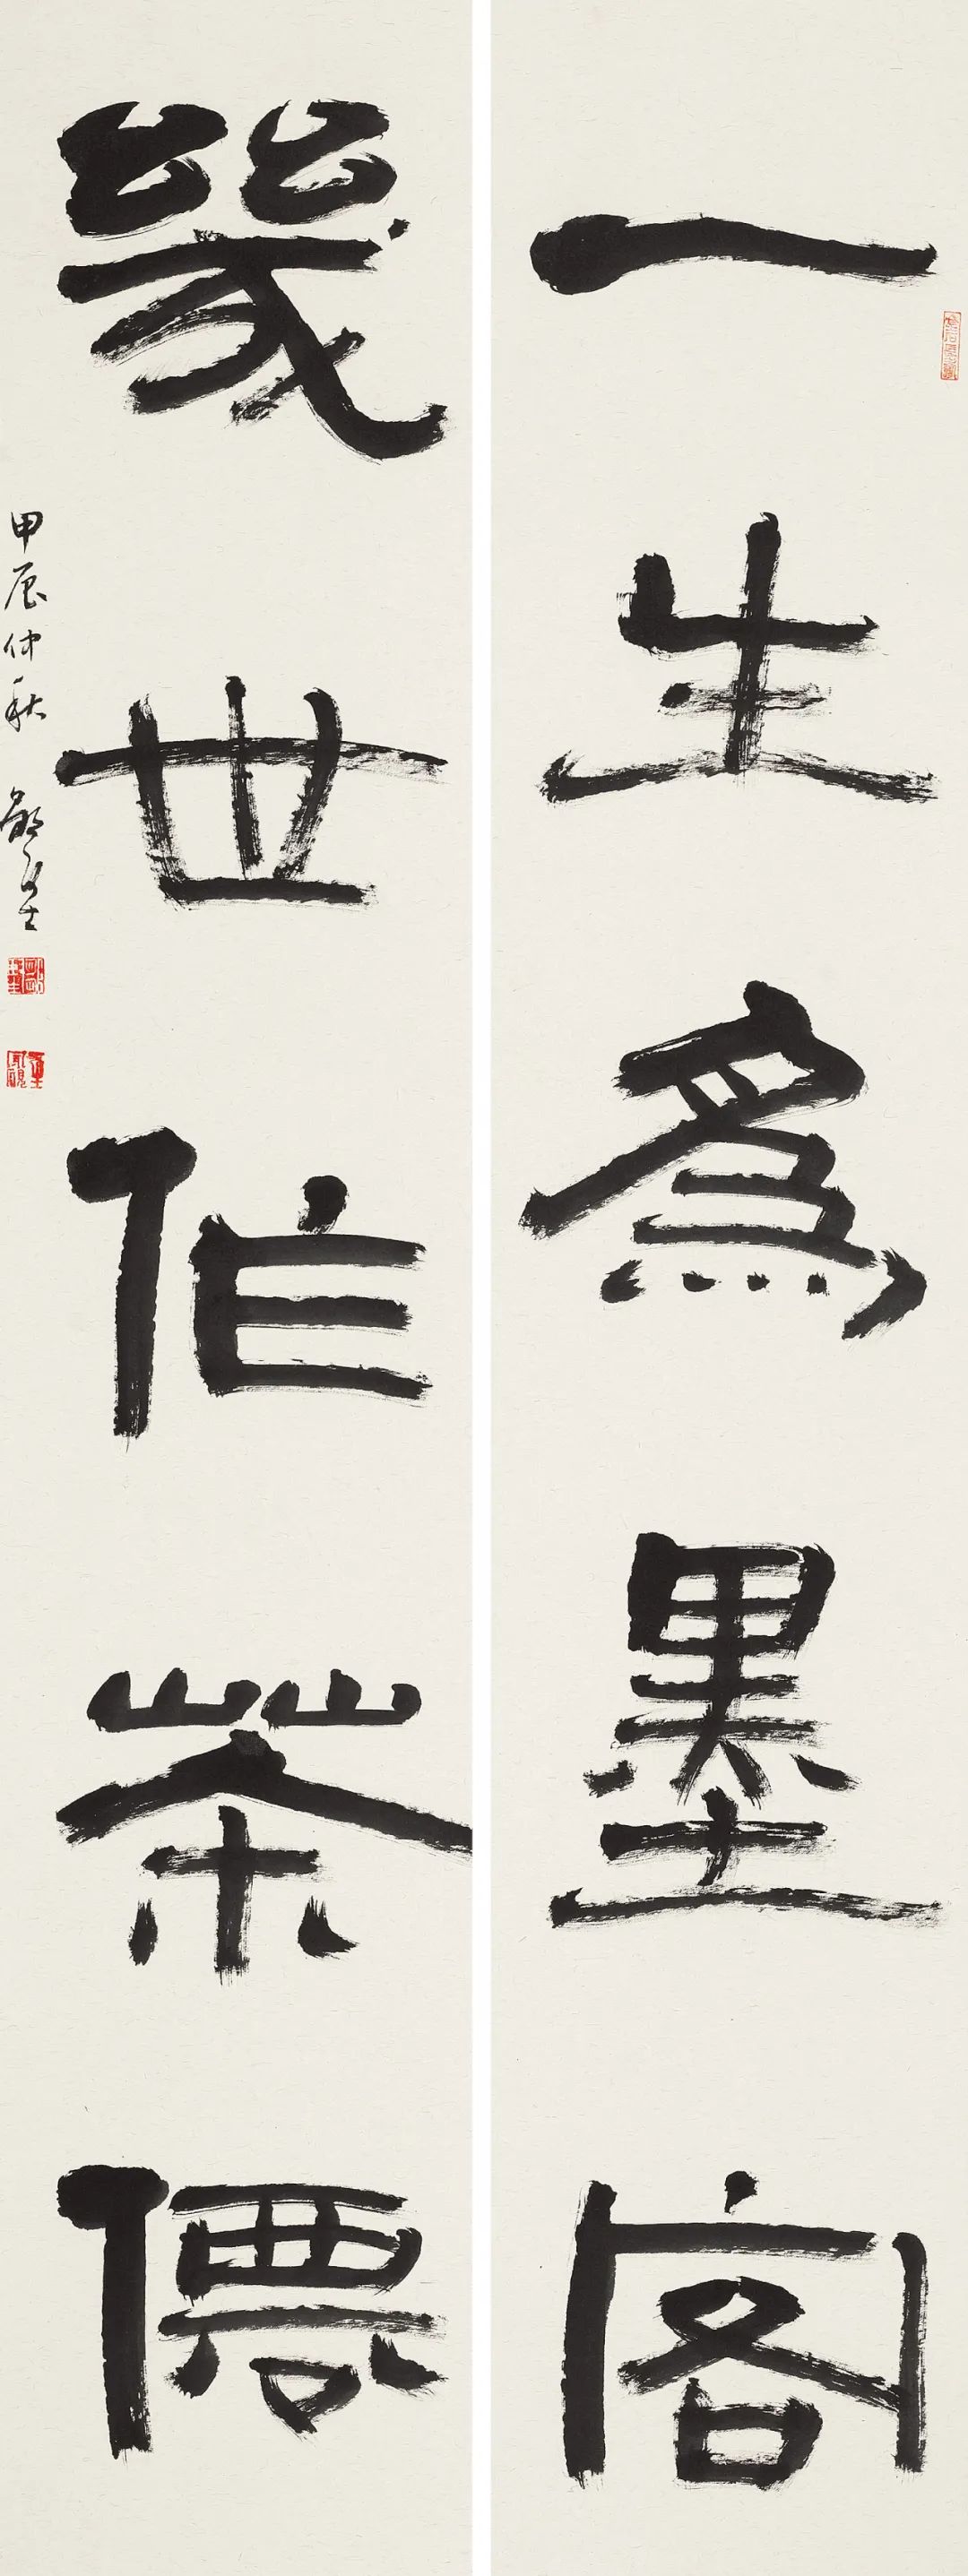 一生爲墨客
幾世作茶僊
甲辰仲秋